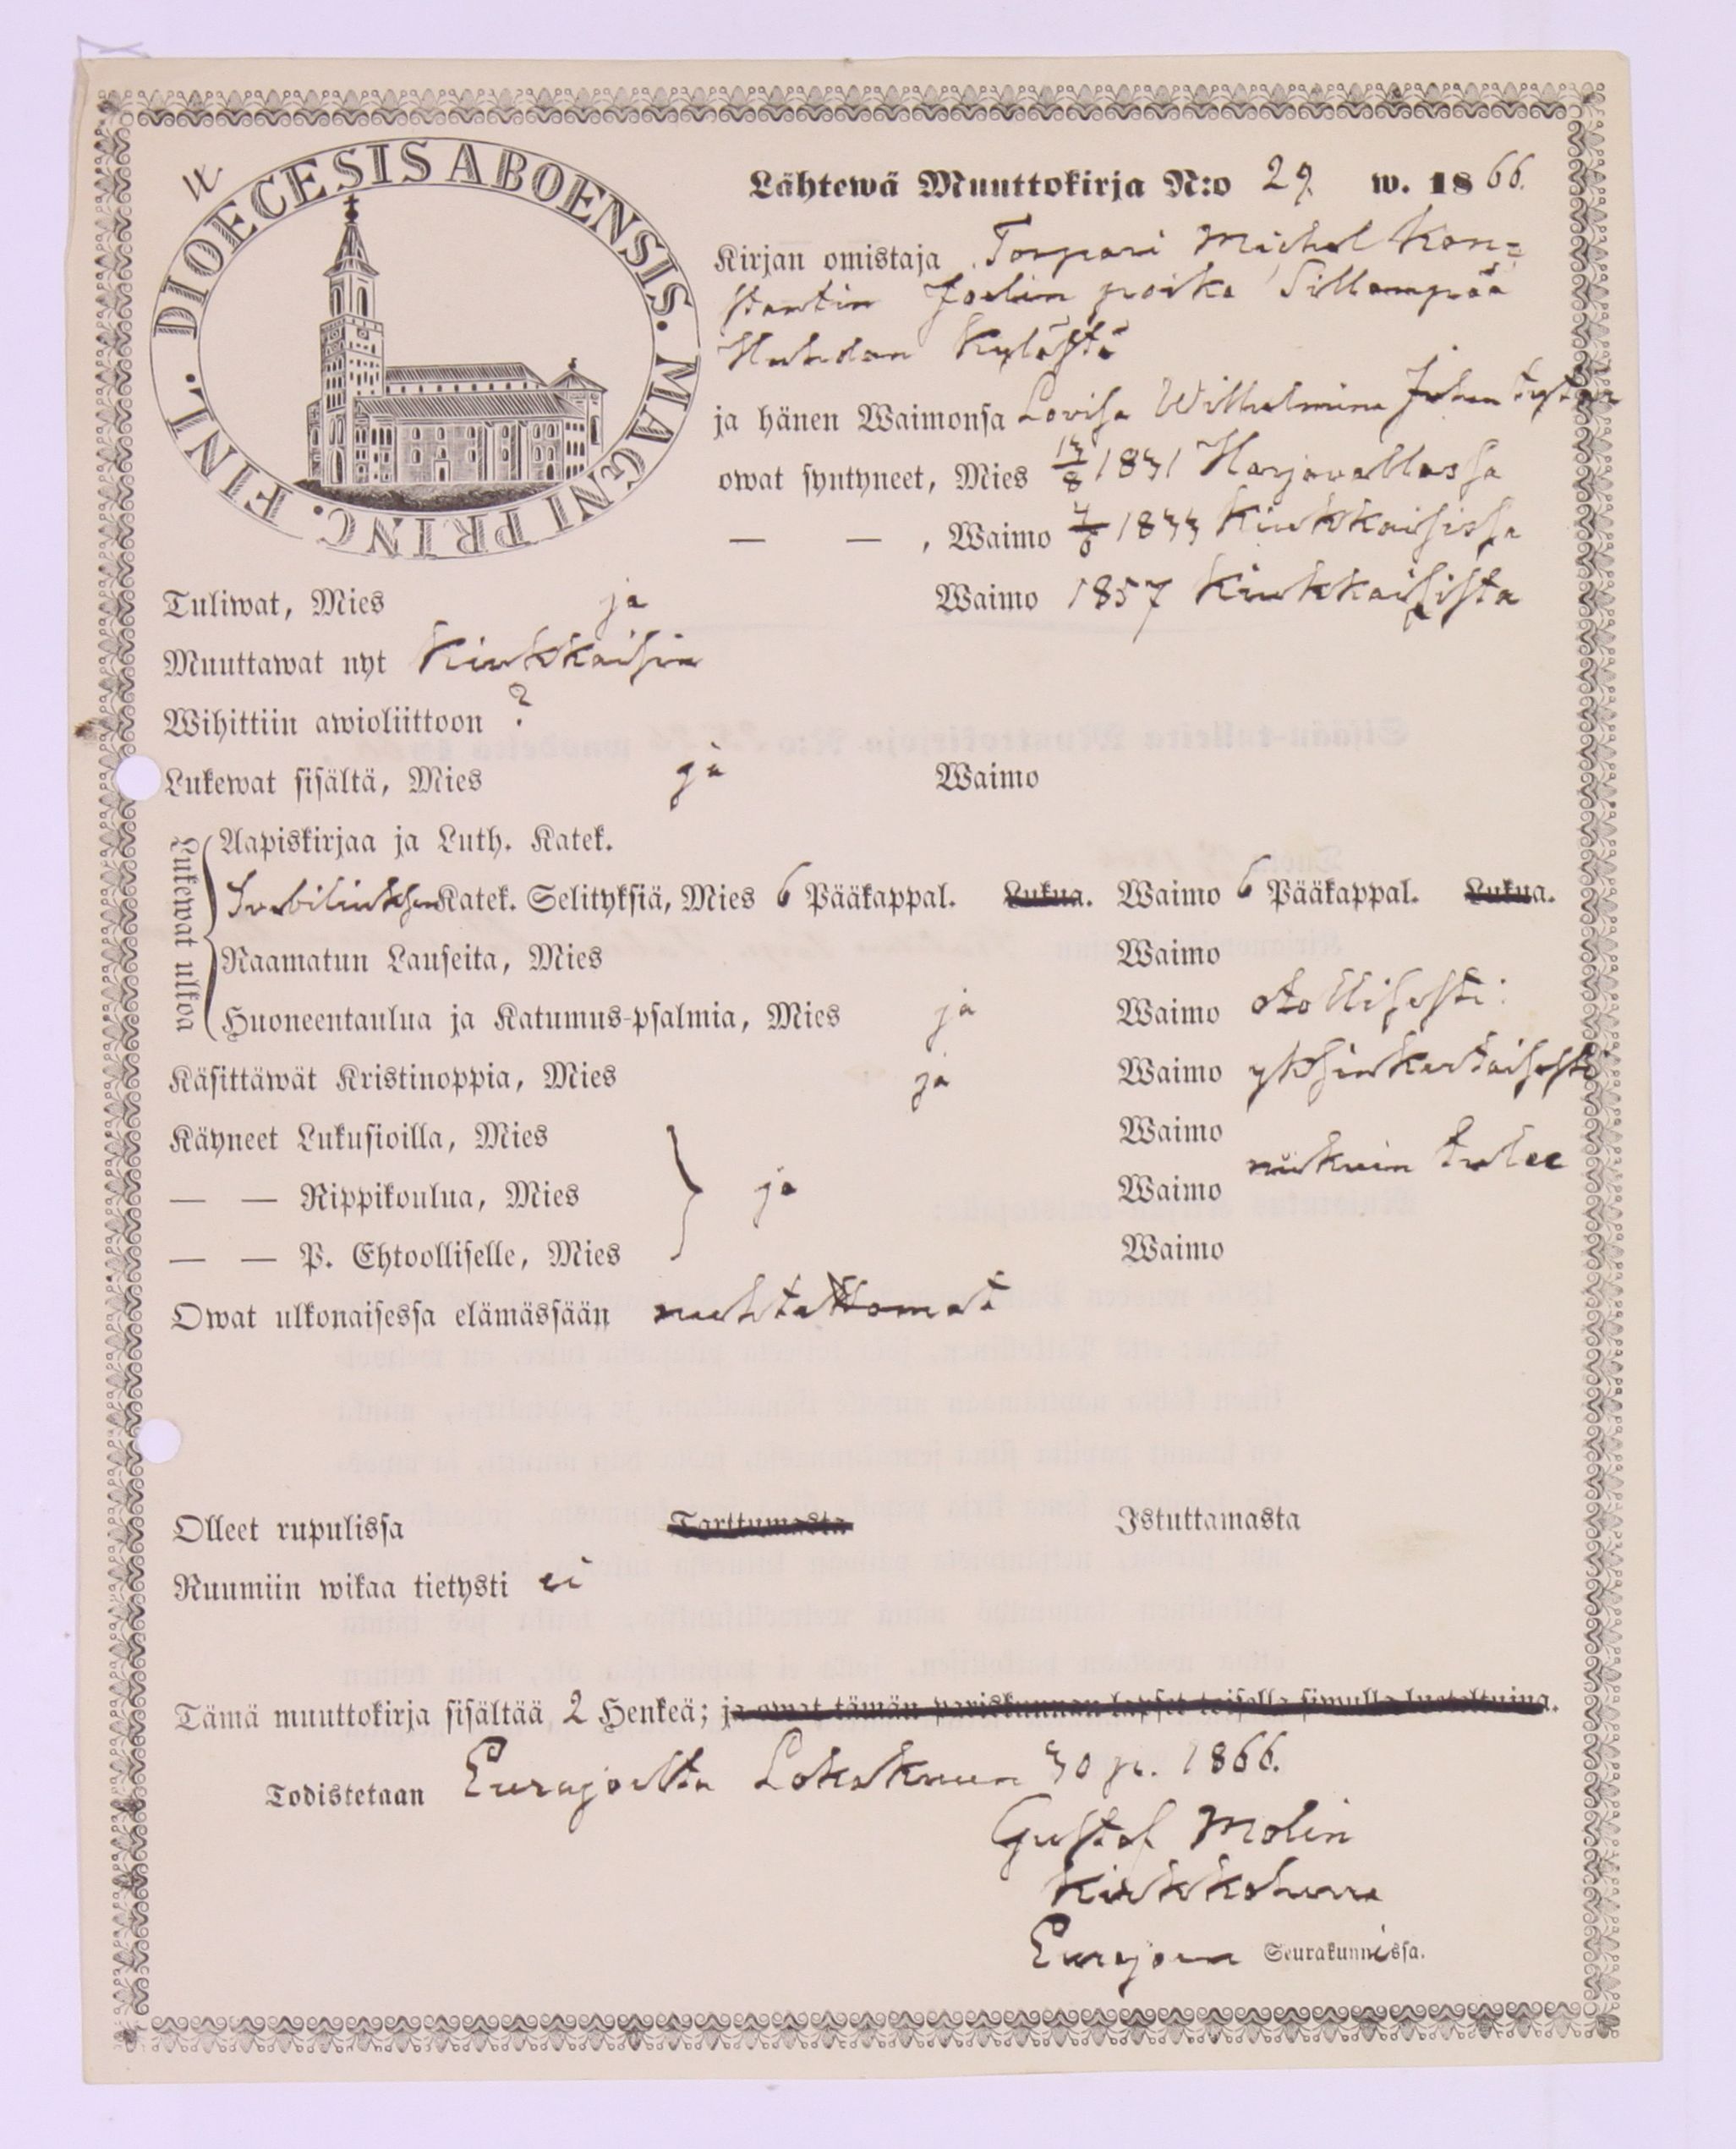 DIOECESIS ABOENSIS. MAGNI PRINC. FINL.
Lähtewä Muuttokirja N:o 29. w. 1866.
Kirjan omistaja Torpari Michel Kon=
stantin Joelin poika Sillampää
Huhdan Kylästä
ja hänen Waimonsa Lovisa Wilhelmina Juhan tytär
owat syntyneet, Mies 13/8 1831 Harjavallassa
— — , Waimo 1833 Kiukkaisissa
Tuliwat, Mies ja Waimo 1857 Kiukkaisista
Muuttawat nyt Kiukkaisiin
Wihittiin awioliittoon ?
Lukewat sisältä, Mies ja Waimo
Lukewat ulkoa
Aapiskirjaa ja Luth. Katek.
Svebiliuksen Katek. Selityksiä, Mies 6 Pääkappal. Lukua. Waimo 6 Pääkappal. Lukua.
Raamatun Lauseita, Mies Waimo
Huoneentaulua ja Katumus-psalmia, Mies ja Waimo
Käsittäwät Kristinoppia, Mies ja Waimo yksinkertaisesti
Käyneet Lukusioilla, Mies Waimo
— — Rippikoulua, Mies ja Waimo niinkuin tulee
— — P. Ehtoolliselle, Mies Waimo
Owat ulkonaisessa elämässään nuhtettomat
Olleet rupulissa Tarttumasta Istuttamasta
Ruumiin wikaa tietysti ei
Tämä muuttokirja sisältää 2 Henkeä; ja owat tämän pariskunnan lapset toisella siwulla lueteltuina.
Todistetaan Eurajoelta Lokakuun 30 p. 1866.
Gustaf Molin
Kirkkoherra
Eurajoen Seurakunnissa.